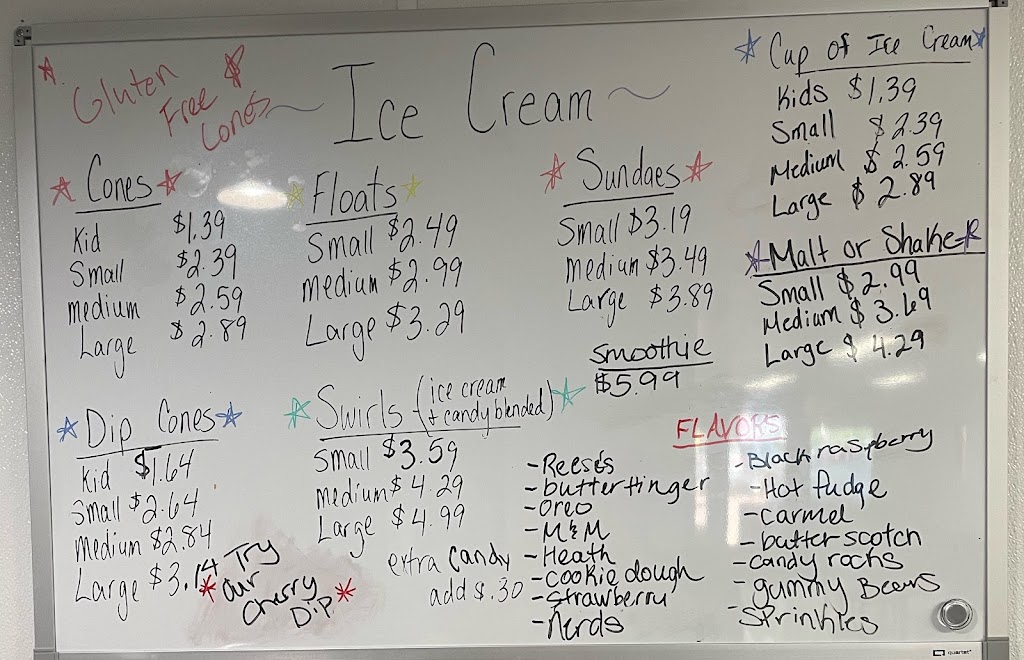 Gluten
Free
Cones
Ice Cream
Cones
Kid $1.39
Small $2.39
medium $2.59
Large $2.89
Floats
Small $2.49
medium $2.99
Large $3.29
Sundaes
Small $3.19
medium $3.49
Large $3.89
Smoothie
$5.99
Cup of Ice Cream
Kids $1.39
Small $2.39
Medium $2.59
Large $2.89
Malt or Shake
Small $2.99
Medium $3.69
Large $4.29
Dip Cones
Kid $1.64
Small $2.64
Medium $2.84
Large $3.14
Try
our
Cherry
Dip
Swirls (ice cream
+ candy blended)
Small $3.59
medium $4.29
Large $4.99
extra candy
add $.30
FLAVORS
- Reese's
- butterfinger
- Oreo
- M&M
- Heath
- cookie dough
- Strawberry
- Nerds
- Black raspberry
- Hot fudge
- Carmel
- butter scotch
- candy rocks
- gummy Bears
- Sprinkles
quartet